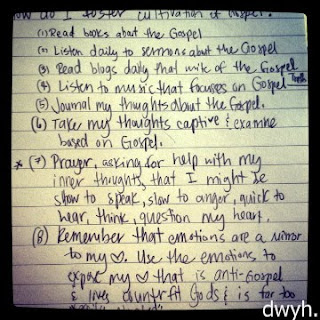 How do I foster cultivation of Gospel?
(1) Read books about the Gospel
(2) Listen daily to sermons about the Gospel
(3) Read blogs daily that write of the Gospel
(4) Listen to music that focuses on Gospel Truth
(5) Journal my thoughts about the Gospel.
(6) Take my thoughts captive & examine
based on Gospel.
* (7) Prayer, asking for help with my
inner thoughts, that I might be
slow to speak, slow to anger, quick to
hear, think, question my heart.
(8) Remember that emotions are a mirror
to my ♡. Use the emotions, to
expose my ♡ that is anti-Gospel
& lives counterfit Gods & is far too
dwyh.